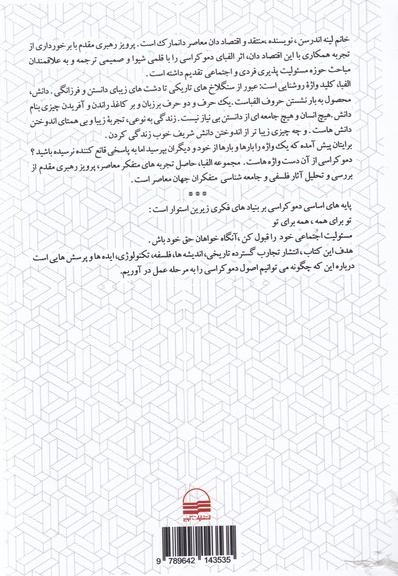 خانم لینه اندرسن ، نویسنده ،منتقد و اقتصاد دان معاصر دانمارک است . پرویز رهبری مقدم با برخورداری از
تجربه همکاری با این اقتصاد دان، اثر الفبای دموکراسی را با قلمی شیوا و صمیمی ترجمه و به علاقمندان
مباحث حوزه مسئولیت پذیری فردی و اجتماعی تقدیم داشته است .
الفبا، کلید واژهٔ روشنایی است: عبور از سنگلاخ های تاریکی تا دشت های زیبای دانستن و فرزانگی . دانش،
محصول به بار نشستن حروف الفباست . یک حرف و دو حرف بر زبان و بر کاغذ راندن و آفریدن چیزی بنام
دانش .هیچ انسان و هیچ جامعه ای از دانستن بی نیاز نیست . زندگی به نوعی، تجربهٔ زیبا و بی همتای اندوختن
دانش هاست . و چه چیزی زیبا تر از اندوختن دانش شریف خوب زندگی کردن .
برایتان پیش آمده که یک واژه را بارها و بارها از خود و دیگران بپرسید اما به پاسخی قانع کننده نرسیده باشید ؟
دموکراسی از آن دست واژه هاست . مجموعه الفبا، حاصل تجربه های متفکر معاصر، پرویز رهبری مقدم از
بررسی و تحلیل آثار فلسفی و جامعه شناسی متفکران جهان معاصر است .
***
پایه های اساسی دموکراسی بر بنیاد های فکری زیرین استوار است :
تو برای همه ، همه برای تو
مسئولیت اجتماعی خود را قبول کن ،آنگاه خواهان حق خود باش .
هدف این کتاب، انتشار تجارب گسترده تاریخی، اندیشه ها، فلسفه، تکنولوژی، ایده ها و پرسش هایی است
درباره این که چگونه می توانیم اصول دموکراسی را به مرحله عمل در آوریم.
انتشارات
9 789642 143535